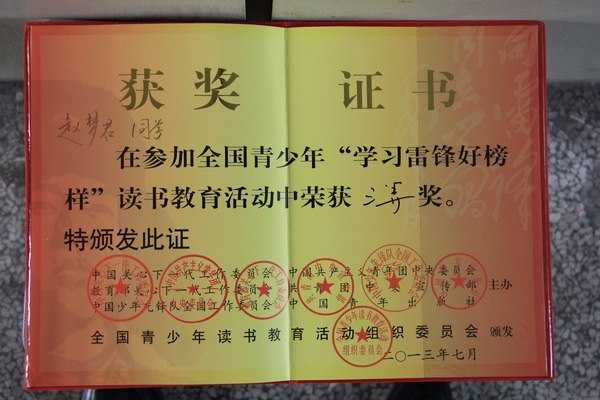 获奖 证书
赵梦君 同学
在参加全国青少年“学习雷锋好榜
样”读书教育活动中荣获 三等 奖。
特颁发此证
中国关心下一代工作委员会 中国共产主义青年团中央委员会
教育部关心下一代工作委员会 共青团中央宣传部 主办
中国少年先锋队全国工作委员会 中国青年出版社
全国青少年读书教育活动组织委员会 颁发
二〇一三年七月